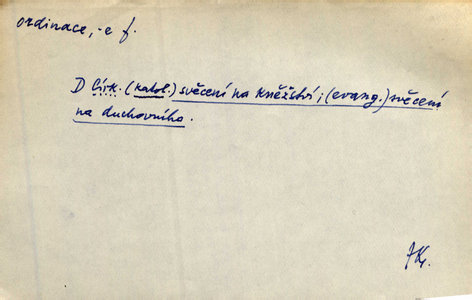 ordinace, -e f.
D Círk. (katol.) svěcení na kněžství; (evang.) svěcení
na duchovního.